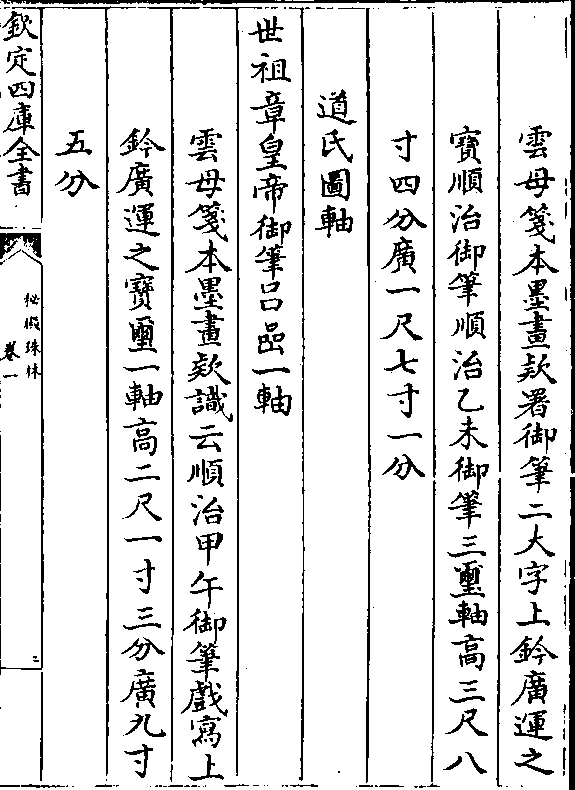 雲母箋本墨畫欵署御筆二大字上鈐廣運之
寶順治御筆順治乙未御筆三璽軸高三尺八
寸四分廣一尺七寸一分
道氏圖軸
世祖章皇帝御筆呂嵒一軸
雲母箋本墨畫欵識云順治甲午御筆戲寫上
鈐廣運之寶璽一軸高二尺一寸三分廣九寸
五分
欽定四庫全書
秘殿珠林
卷一
二